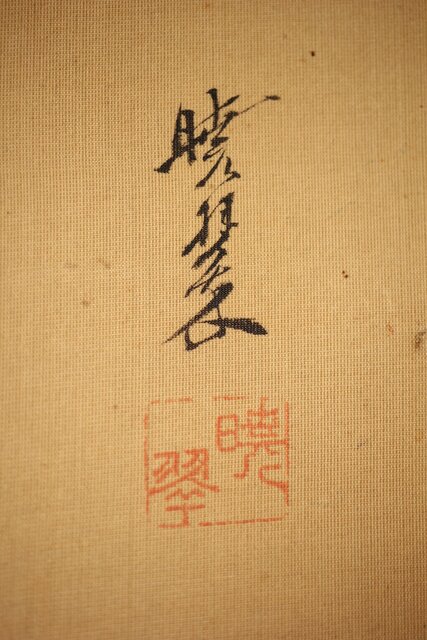 暁翠
暁翠